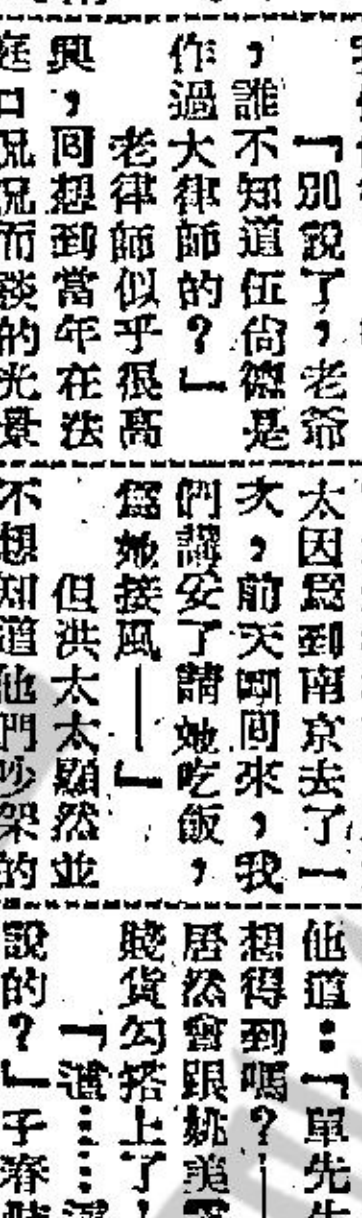 「別説了，老爺
，誰不知道伍尙德是
作過大律師的？」
老律師似乎很高
興，回想到當年在法
庭口侃侃而談的光景
太因爲到南京去了一
次，前天剛回來，我
們講妥了請她吃飯，
爲她接風——」
但洪太太顯然並
不想知道他們吵架的
他道：「單先生
想得到嗎？—
居然會跟姚美
賤貨勾搭上了
「誰⋯⋯
說的？」子春